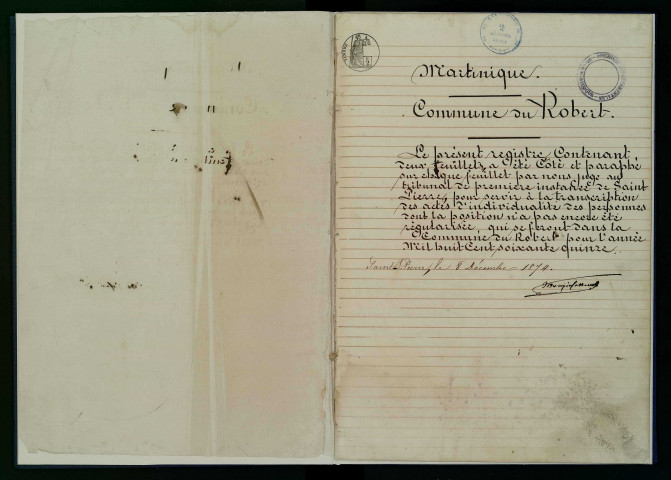 Martinique.
Commune du Robert.
Le présent registre, Contenant,
deux feuillets, a été Coté et paraphé
sur chaque feuillet par nous, juge au
tribunal de première instance de Saint
Pierre, pour servir à la transcription
des actes d'individualité des personnes
dont la position n'a pas encore été
régularisée, qui se feront dans la
Commune du Robert pour l'année
Mil huit Cent soixante quinze.
Saint-Pierre, le 8 Décembre 1874.